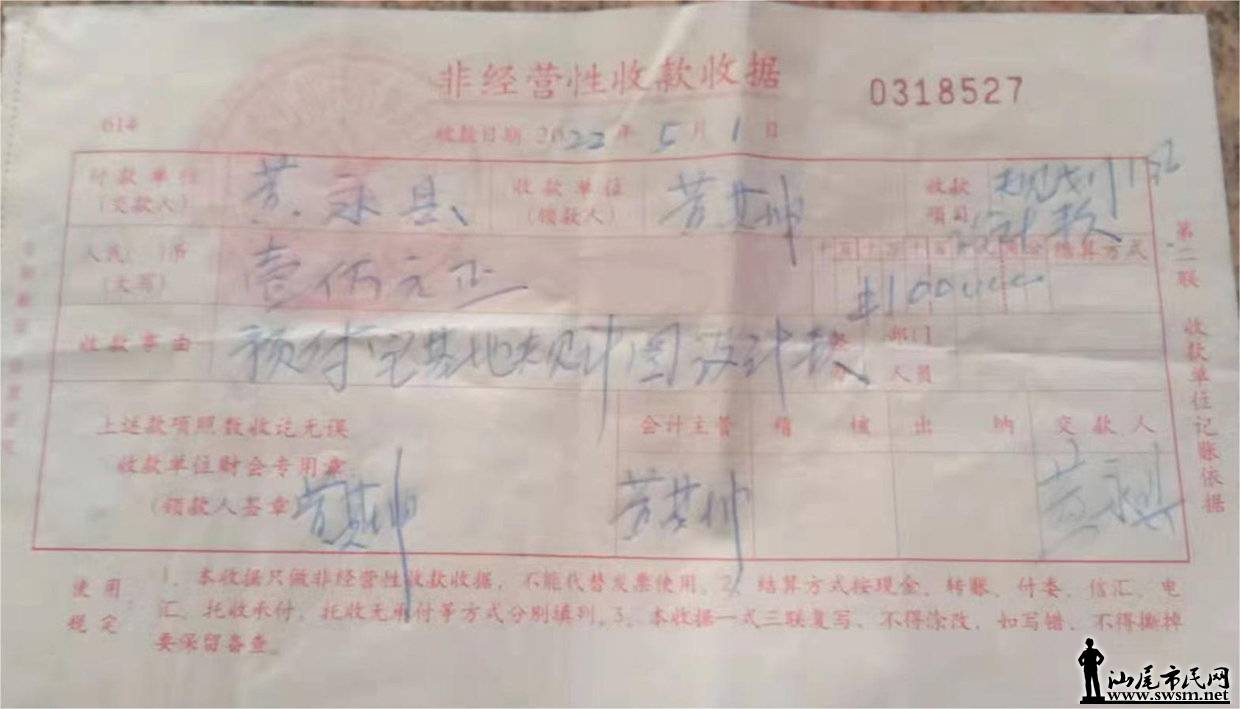 非经营性收款收据
0318527
614
收款日期 2022年 5月 1日
付款单位
(交款人)
黄永县
收款单位
(领款人)
收款
项目
规划
设计款
人民( )币
(大写)
壹佰元正
十百十万千百十元角分
结算方式
收款事由
预付宅基地规划图设计款
部门
人员
上述款项照数收讫无误
收款单位财会专用章
(领款人签章)
会计主管
稽 核
出 纳
交款人
第二联
收款单位记账依据
使用
规定
1、本收据只做非经营性收款收据,不能代替发票使用。2、结算方式按现金、转账、付委、信汇、电
汇、托收承付,托收无承付等方式分别填列。3、本收据一式三联复写、不得涂改,如写错、不得撕掉
要保留备查。
汕尾市民网
www.swsm.net